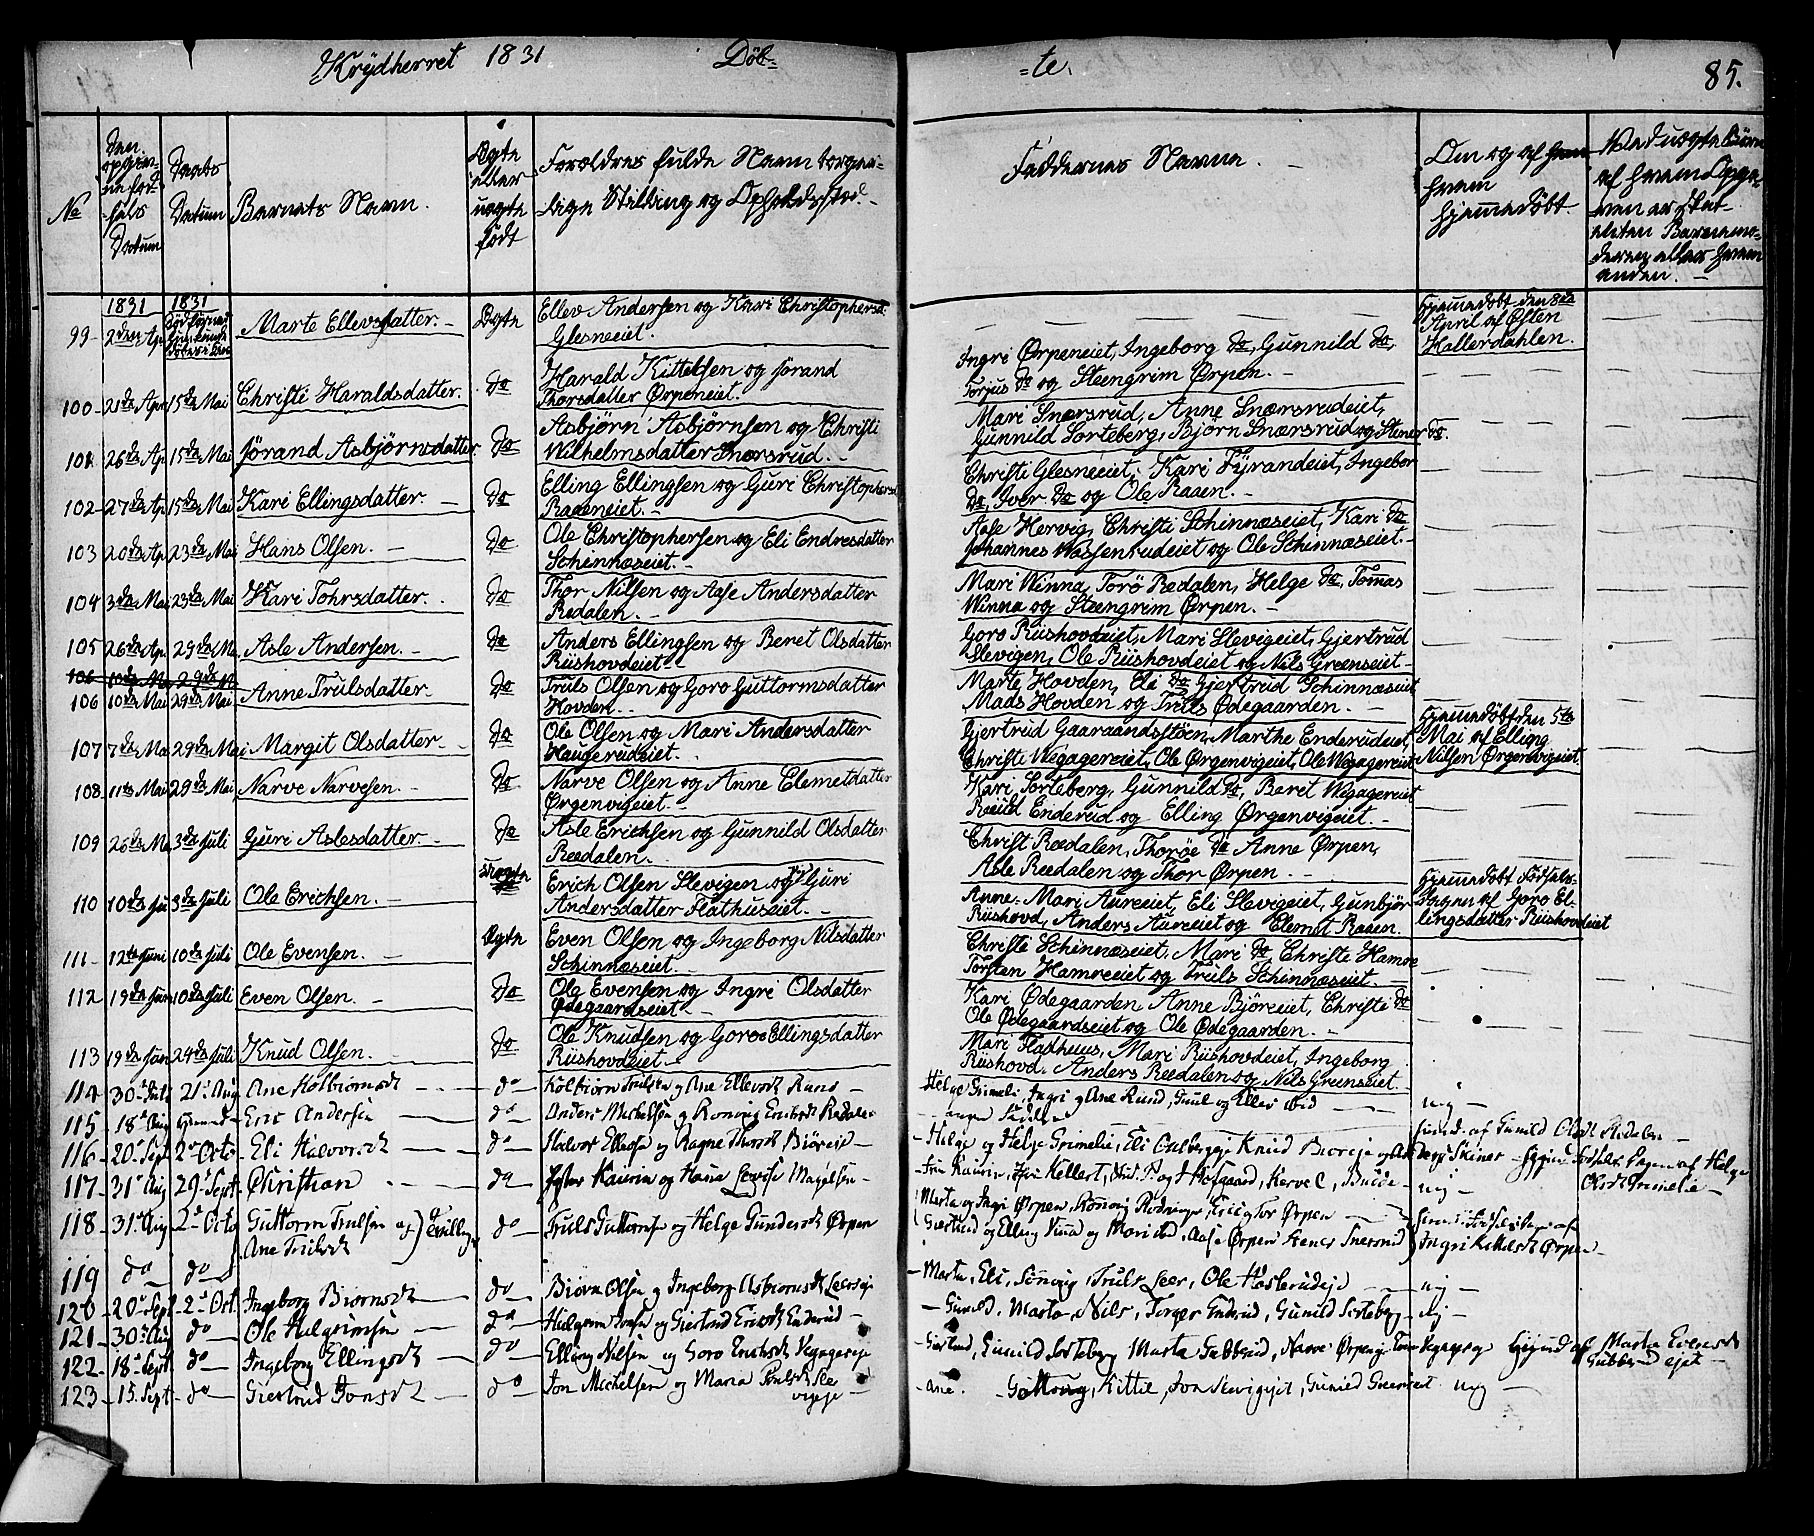 Krydherret 1831 Døb-
-te.
85.
No
Den opgivne fødsels Datum
Daabs Datum
Barnets Navn.
Ægte eller uægte født
Forældres fulde Navn borgerlige Stilling og Opholdssted.-
Faddernes Navne.
Om og af hvem hjemmedøbt.
Ved uægte Børn af hvem Opgaven er sket enten Barnemoderen eller hvem anden.-
1831 1831
99- 2den Ap Marte Ellevsdatter.- Ægte Ellev Andersen og Kari Christophersd: Glesneeiet. Hjemmedøbt den 8de April af Østen Hallerdahlen.
100- 21de Apr 15de Mai Christi Haraldsdatter. do Harald Kittelsen og Jørand Thorsdatter Ørpeneiet. Ingri Ørpeneiet, Ingeborg do, Gunnild do, Torjus do og Steengrim Ørpen.-
101 26de Ap 15de Mai Jørand Asbjørnsdatter. do Asbjørn Asbjørnsen og Christi Wilhelmsdatter Snærsrud.- Mari Snærsrud, Anne Snærsrudeiet, Gunnild Sorteberg, Bjørn Snærsrud og Stener do.
102- 27de Ap 15de Mai Kari Ellingsdatter.- do Elling Ellingsen og Guri Christophersd Raaeneiet.- Christi Glesneeiet, Kari Fyrandeiet, Ingebor do, Iver do og Ole Raaen.-
103 20de Ap 23de Mai Hans Olsen.- do Ole Christophersen og Eli Endresdatter Schinnæseiet.- Aase Hervig, Christi Schinnæseiet, Kari do Johannes Wassenrudeiet og Ole Schinnæseiet.-
104 3de Mai 23de Mai Kari Tohrsdatter. do Thor Nilsen og Aase Andersdatter Redalen.- Mari Winna, Torø Redalen, Helge do, Tomas Winna og Steengrim Ørpen.-
105 26de Ap 29de Ma Asle Andersen.- do Anders Ellingsen og Beret Olsdatter Riishovdeiet.- Goro Riishovdeiet, Mari Slevigeiet, Gjertrud Slevigen, Ole Riishovdeiet og Nils Greenseiet-
106 10de Ma 29de M
106 10de Mai 29de Mai Anne Trulsdatter- do Truls Olsen og Goro Guttormsdatter Hovden.- Marte Hovden, Eli do, Gjertrud Schinnæseiet Mads Hovden og Truls Ødegaarden.-
107 7de Ma 29de Mai Margit Olsdatter.- do Ole Olsen og Mari Andersdatter Haugerudeiet. Gjertrud Gaaraandsstøen, Marthe Enderudeiet, Christi Wegagereiet, Ole Ørgenvigeiet, Ole Wegagereiet Hjemmedøbt den 5te Mai af Elling Nilsen Ørgenvigeiet
108- 11te Mai 29de Mai Narve Narvesen.- do Narve Olsen og Anne Elemetsdatter Ørgenvigeiet.- Kari Sorteberg, Gunnild do, Beret Wegagereiet Enderud og Elling Ørgenvigeiet.-
109 26de Ma 3de Juli Guri Aslesdatter.- do Asle Erichsen og Gunnild Olsdatter Reedalen.- Christi Reedalen, Thorøe do Anne Ørpen, Asle Reedalen og Thor Ørpen.-
110 10de Ju 3de Juli Ole Erichsen.- Uægte Erich Olsen Slevigen og Guri Andersdatter Flathuseiet.- Anne Mari Aureeiet, Eli Slevigeiet, Gunbjør Riishovd, Anders Aureeiet og Elemet Raaen. Hjemmedøbt Fødselsdagen af Goro Ellingsdatter Riishovdeiet
111- 12te Juni 10de Juli Ole Evensen.- Ægte Even Olsen og Ingeborg Nilsdatter Schinnæseiet.- Christi Schinnæseiet, Mari do, Christi Hamre Torsten Hamreeiet og Truls Schinnæseiet.-
112 19de Jun 10de Juli Even Olsen.- do Ole Evensen og Ingri Olsdatter Ødegaardseiet- Kari Ødegaarden, Anne Bjøreiet, Christi do Ole Ødegaardseiet og Ole Ødegaarden.-
113 19de Jun 24de Juli Knud Olsen.- do Ole Knudsen og Goro Ellingsdatter Riishovdeiet.- Mari Fladhuus, Mari Riishovdeiet, Ingeborg Riishovd. Anders Reedalen og Nils Greenseiet.-
114- 30te Juli 21de Aug Ane Kolbiørnsdt- do- Kolbiørn Trulsen og Ane Ellevsdt Ruud- Helge Grimeli, Ingri og Ane Ruud, Truul og Ellev ibid nej-
115- 18de Aug Eric Andersen do- Anders Michelsen og Rønnoug Ericksdt Redalen hjemd. af Gunild Olsdt Redalen-
116- 20de Sept 2de Octo- Eli Halvorsdt- do- Halvor Ellevsen og Ragne Thorsdt Biøreie- Helge og Helge Grimelie, Eli Knud Biøreie og hjemd. Fødsels Dagen af Helge Olsdt Grimelie-
117- 31te Aug 29de Sept Christian- do Kaurin og Hana Lovise Fru Kaurin, Kervel, Budde- nej-
118- 31te Aug 2de Octo Guttorm Trulsen og Ane Trulsdt Tvillinge do- Truls Guttormsen og Helge Gundersdt Ørpen Marta og Ingri Ørpen, Rønnoug Ørpen- Giertrud og Elling Vinna og Mari ibid, Aase Ørpen Snersrud hjemd. Fødselsdagen af Ingri Kittilsdt Ørpen-
119 do do
120- 20de Sept 2de Oct. Ingeborg Biørnsdt- do Biørn Olsen og Ingeborg Asbiørnsdt Leersje- Marta, Eli, Truls Leer, Ole Haslerudeje- nej-
121- 30te Au do- Ole Helgesen- do- og Giertrud Ericksdt Enderud- Gunild, Marta, Nils, Torger Enderud, Gunild Sorteberg- nej-
122- 18de Sept do- Ingeborg Ellingsdt- do- Elling Nilsen og Goro Vegagereje- Giertrud, Gunild Sorteberg Marta Gubberud, Narve Vegagerej hjemd af Marta Evensdt Gubberud ejet-
123- 15. Sept- do- Giertrud Jonsdt- do- Jon Michelsen og Maria Slevigeje- Ane. Kittil, Jon Slevigejet, Gunild nej-